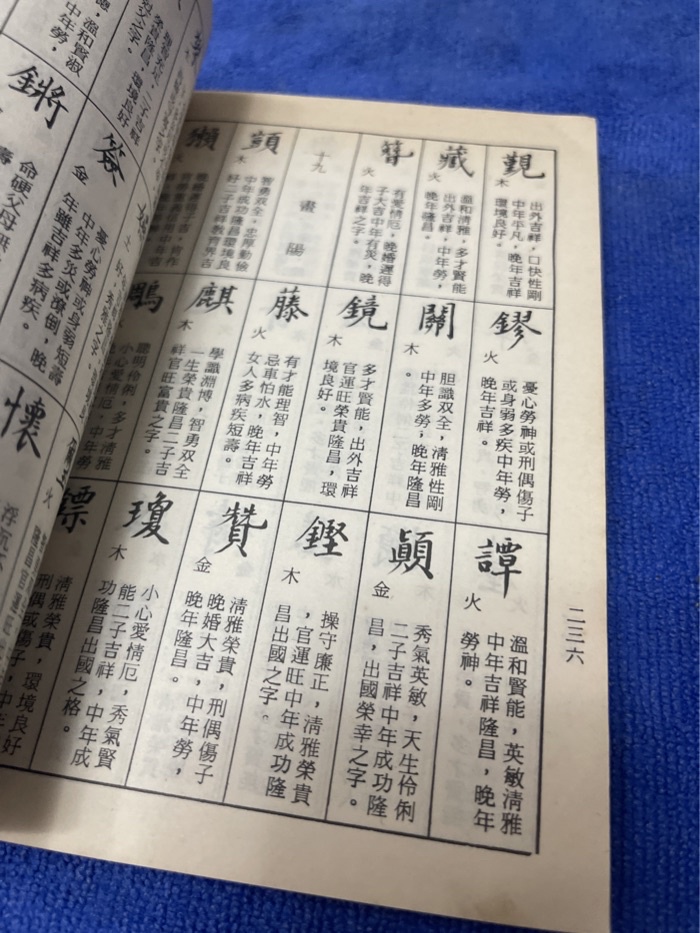 覲
木
出外吉祥，口快性剛
中年平凡，晚年吉祥
環境良好。
藏
火
溫和清雅，多才賢能
出外吉祥，中年勞，
晚年隆昌。
簪
火
有愛情厄，晚婚遲得
子大吉中年有災，晚
年吉祥之字。
十九畫陽
顗
木
智勇双全，忠厚勤儉
中年成功隆昌環境良
好二子吉祥教育界吉
獺
鏐
火
憂心勞神或刑偶傷子
或身弱多疾中年勞，
晚年吉祥。
關
木
胆識双全，清雅性剛
中年多勞，晚年隆昌
。
鏡
木
多才賢能，出外吉祥
官運旺榮貴隆昌，環
境良好。
藤
火
有才能理智，中年勞
忌車怕水，晚年吉祥
女人多病疾短壽。
麒
木
學識淵博，智勇双全
一生榮貴隆昌二子吉
祥官旺富貴之字。
鵰
聰明伶俐，多才清雅
小心愛情厄，中年勞
譚
火
溫和賢能，英敏清雅
中年吉祥隆昌，晚年
勞神。
顛
金
秀氣英敏，天生伶俐
二子吉祥中年成功隆
昌，出國榮幸之字。
鏗
木
操守廉正，清雅榮貴
，官運旺中年成功隆
昌出國之字。
贊
金
清雅榮貴，刑偶傷子
晚婚大吉，中年勞，
晚年隆昌。
瓊
木
小心愛情厄，秀氣賢
能二子吉祥，中年成
功隆昌出國之格。
鏢
清雅榮貴，環境良好
刑偶或傷子，中
二三六
溫和賢淑
中年勞，
鏘
簽
金
憂心勞神或身弱短壽
中年多災或潦倒，晚
年雖吉祥多病疾。
命硬父母無
懷
火
浮沉